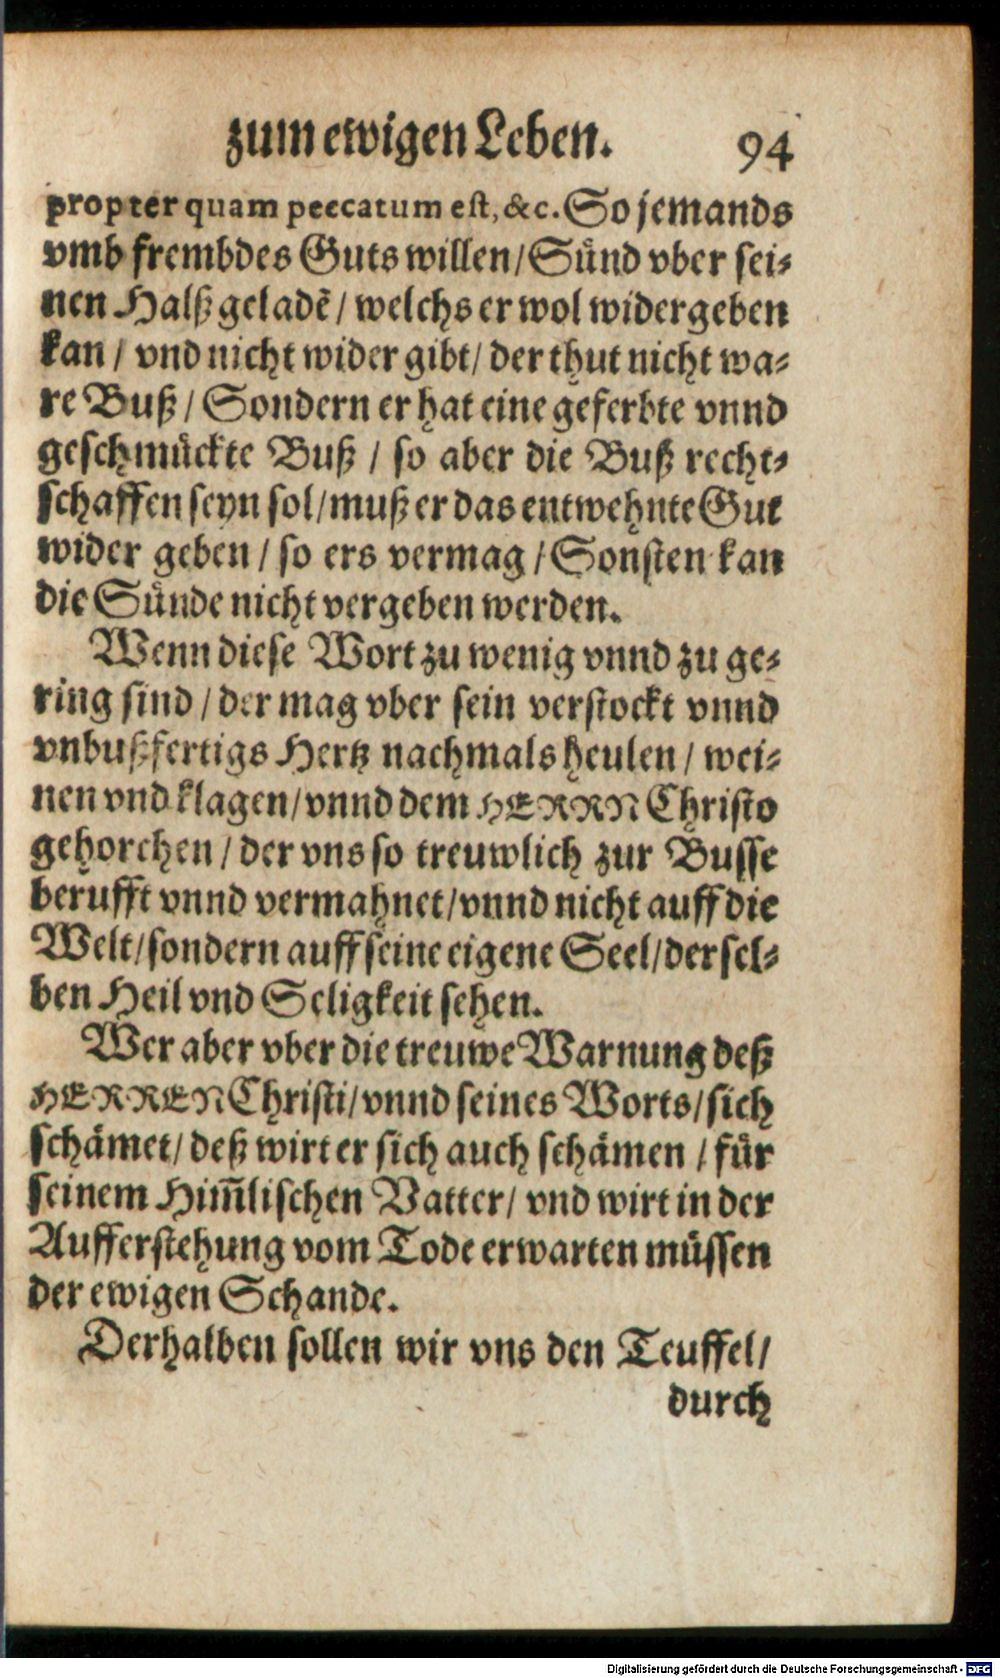 zum ewigen Leben. 94
propter quam peccatum est, &c. So jemands
vmb frembdes Guts willen/ Sünd vber sei-
nen Halß geladē/ welchs er wol widergeben
kan/ vnd nicht wider gibt/ der thut nicht wa-
re Buß/ Sondern er hat eine geferbte vnnd
geschmückte Buß/ so aber die Buß recht-
schaffen seyn sol/ muß er das entwehnte Gut
wider geben/ so ers vermag/ Sonsten kan
die Sünde nicht vergeben werden.
Wenn diese Wort zu wenig vnnd zu ge-
ring sind/ der mag vber sein verstockt vnnd
vnbußfertigs Hertz nachmals heulen/ wei-
nen vnd klagen/ vnnd dem HERRN Christo
gehorchen/ der vns so treuwlich zur Busse
berufft vnnd vermahnet/ vnnd nicht auff die
Welt/ sondern auff seine eigene Seel/ dersel-
ben Heil vnd Seligkeit sehen.
Wer aber vber die treuwe Warnung deß
HERREN Christi/ vnnd seines Worts/ sich
schämet/ deß wirt er sich auch schämen/ für
seinem Him̅lischen Vatter/ vnd wirt in der
Aufferstehung vom Tode erwarten müssen
der ewigen Schande.
Derhalben sollen wir vns den Teuffel/
durch
Digitalisierung gefördert durch die Deutsche Forschungsgemeinschaft - DFG